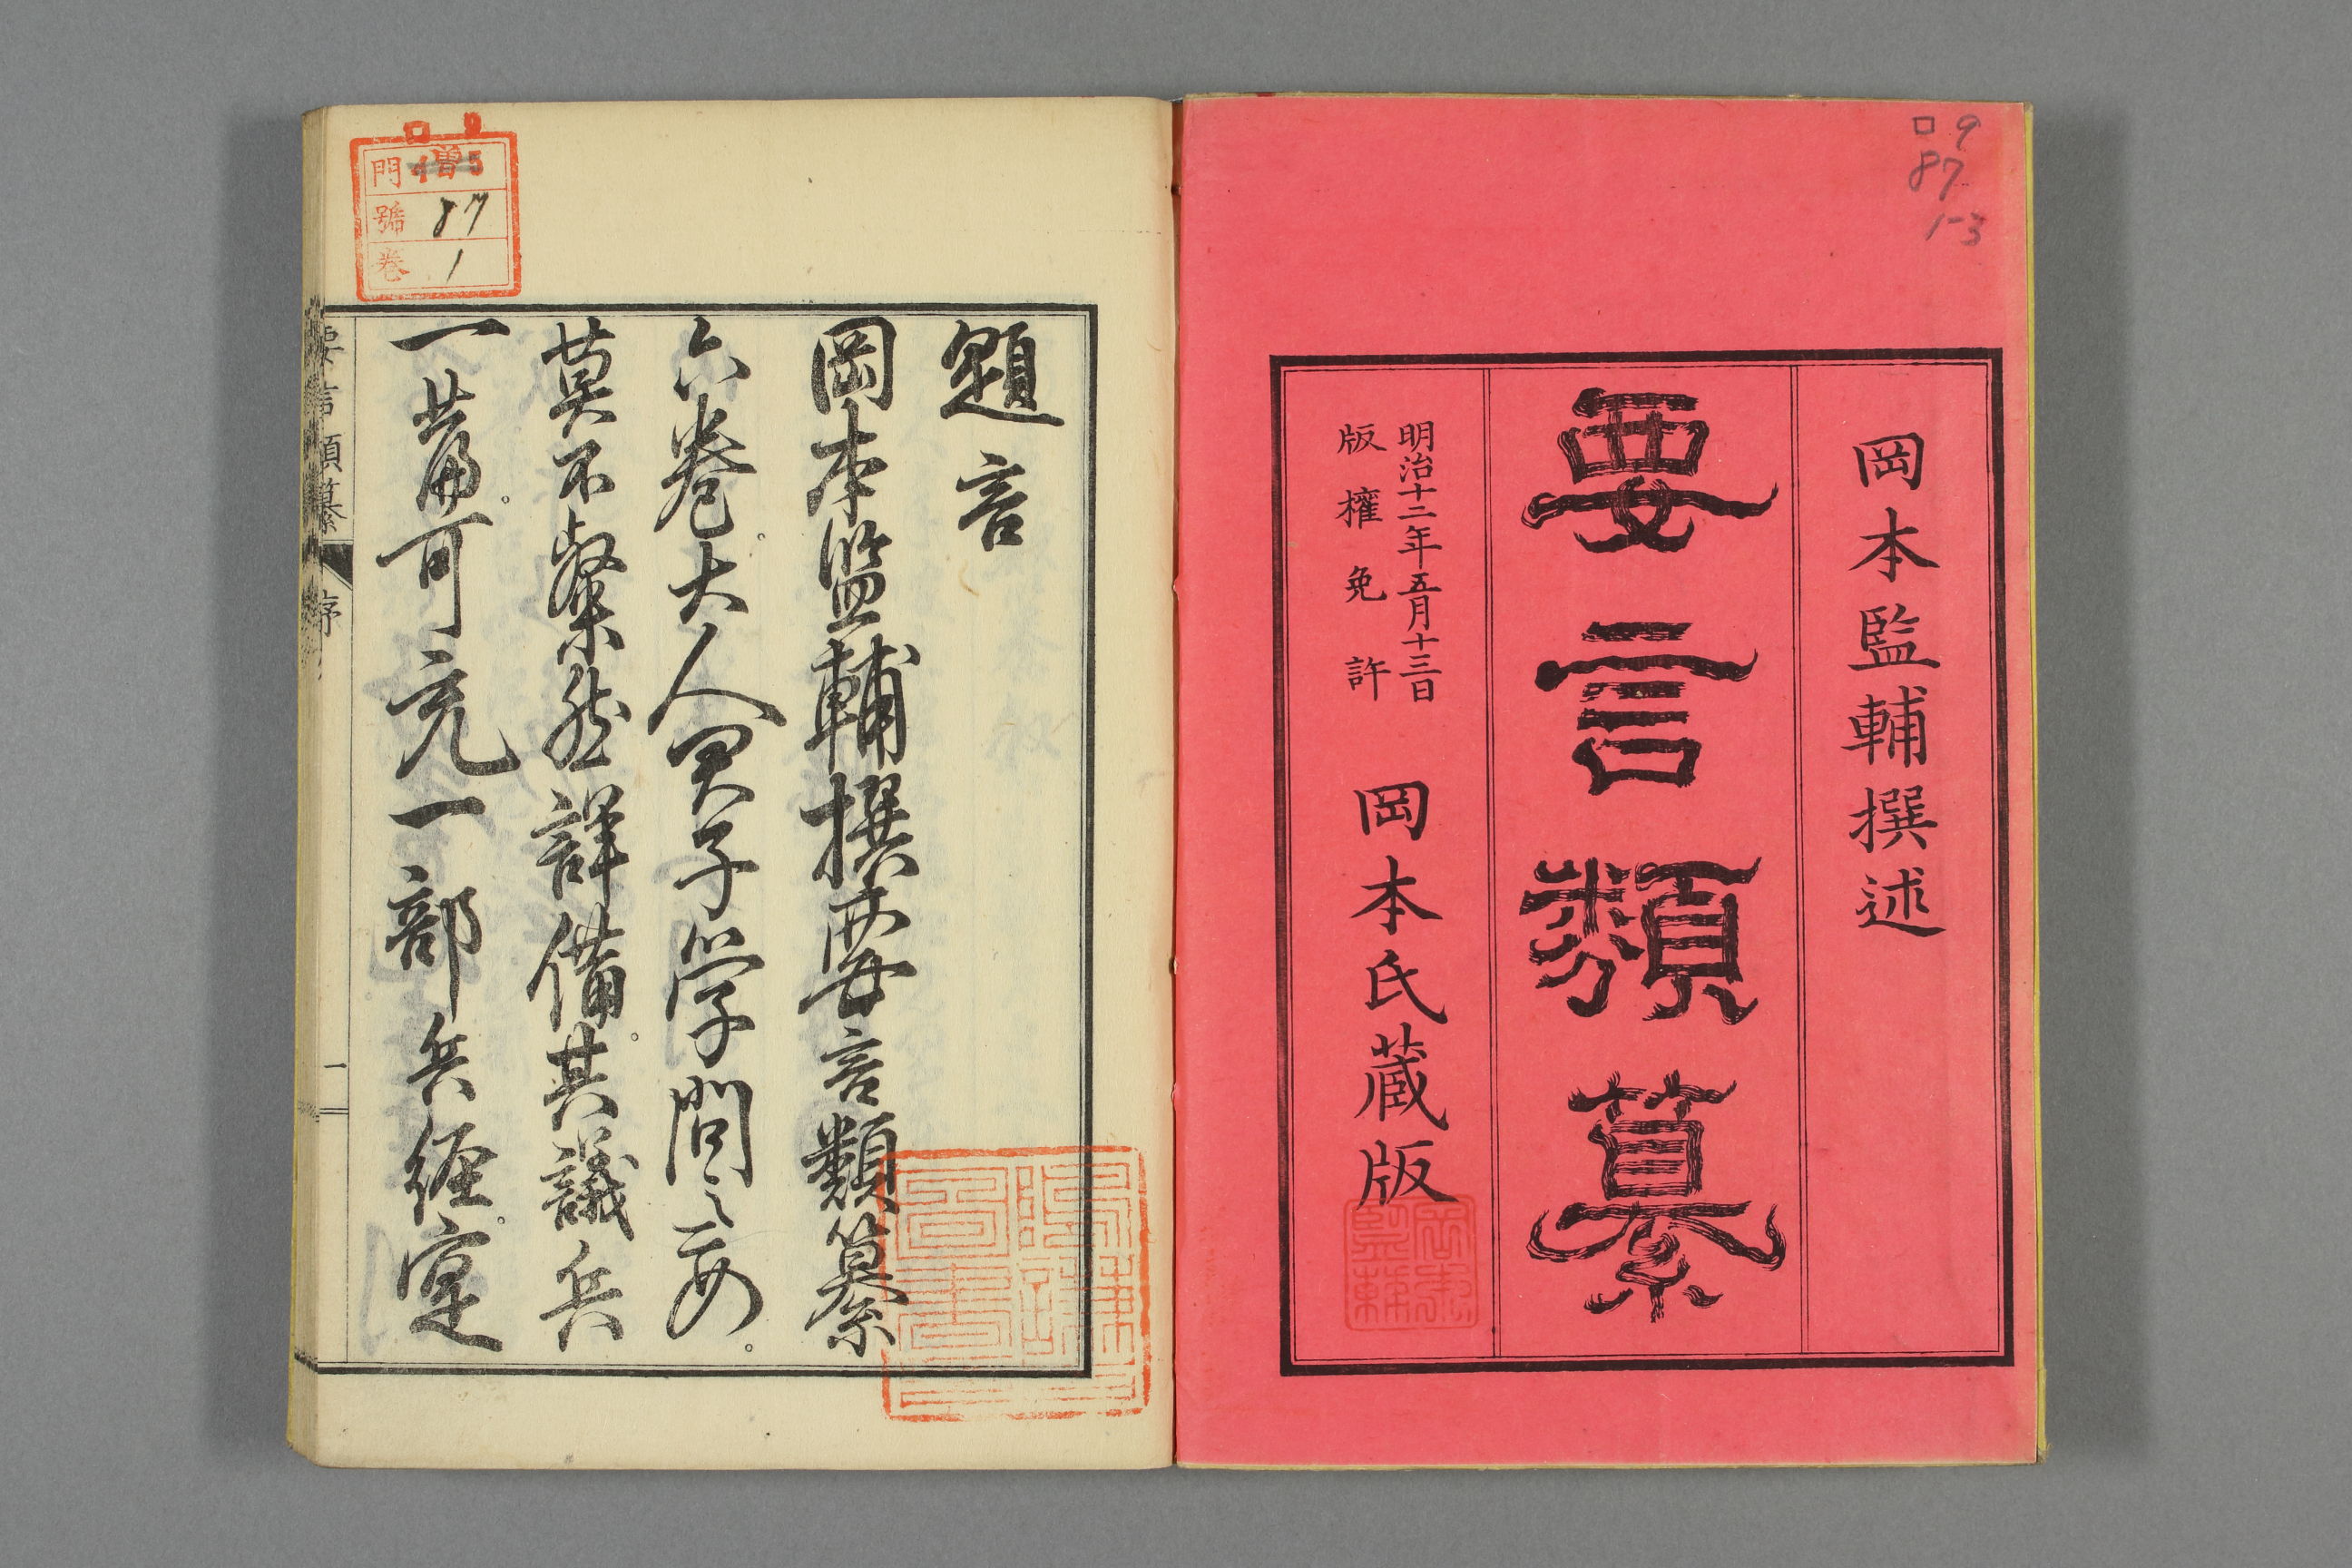 ロ 9
87
1-3
岡本監輔撰述
要言類纂
明治十二年五月十三日
版權免許
岡本氏蔵版
題言
岡本監輔撰要言類纂
六巻。大人君子学問之要。
莫不粲然詳備。其議兵
一篇。可充一部兵経。寔
要言類纂 序 一
ロ 9
門
號 87
巻 1